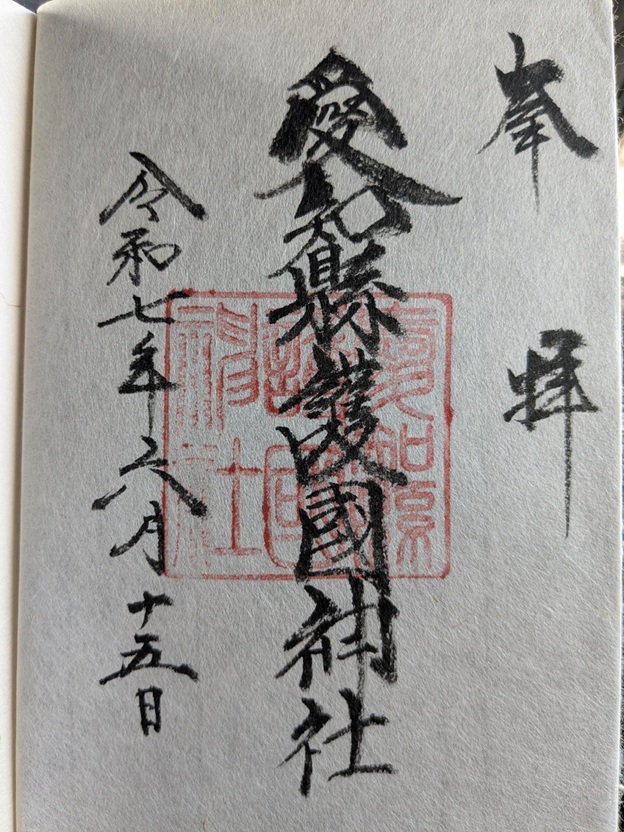 奉拝
愛知縣護國神社
愛知県護国神社
令和七年六月十五日